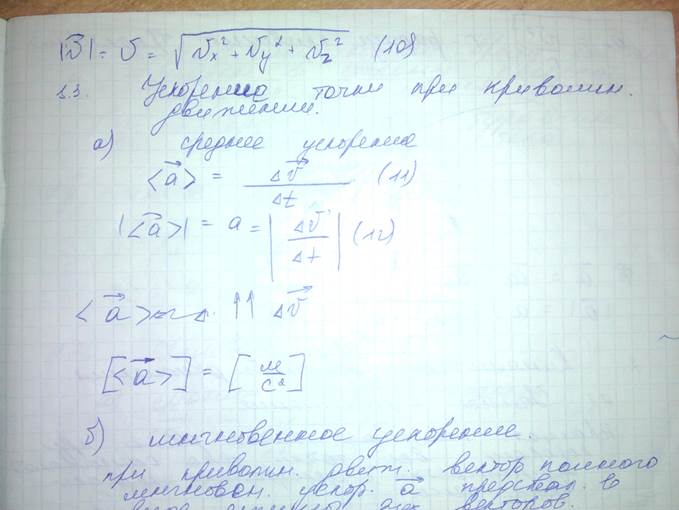 |v⃗| = v = √(vx² + vy² + vz²) (10)
1.3. Ускорение точки при криволин.
движении.
а) среднее ускорение
<a⃗> = Δv⃗ / Δt (11)
|<a⃗>| = a = |Δv⃗ / Δt| (12)
<a⃗> ↑↑ Δv⃗
[<a⃗>] = [м/с²]
б) мнгновенное ускорение.
при криволин. движ. вектор полного
мнгновен. ускор. a⃗ представ. в
векторов.